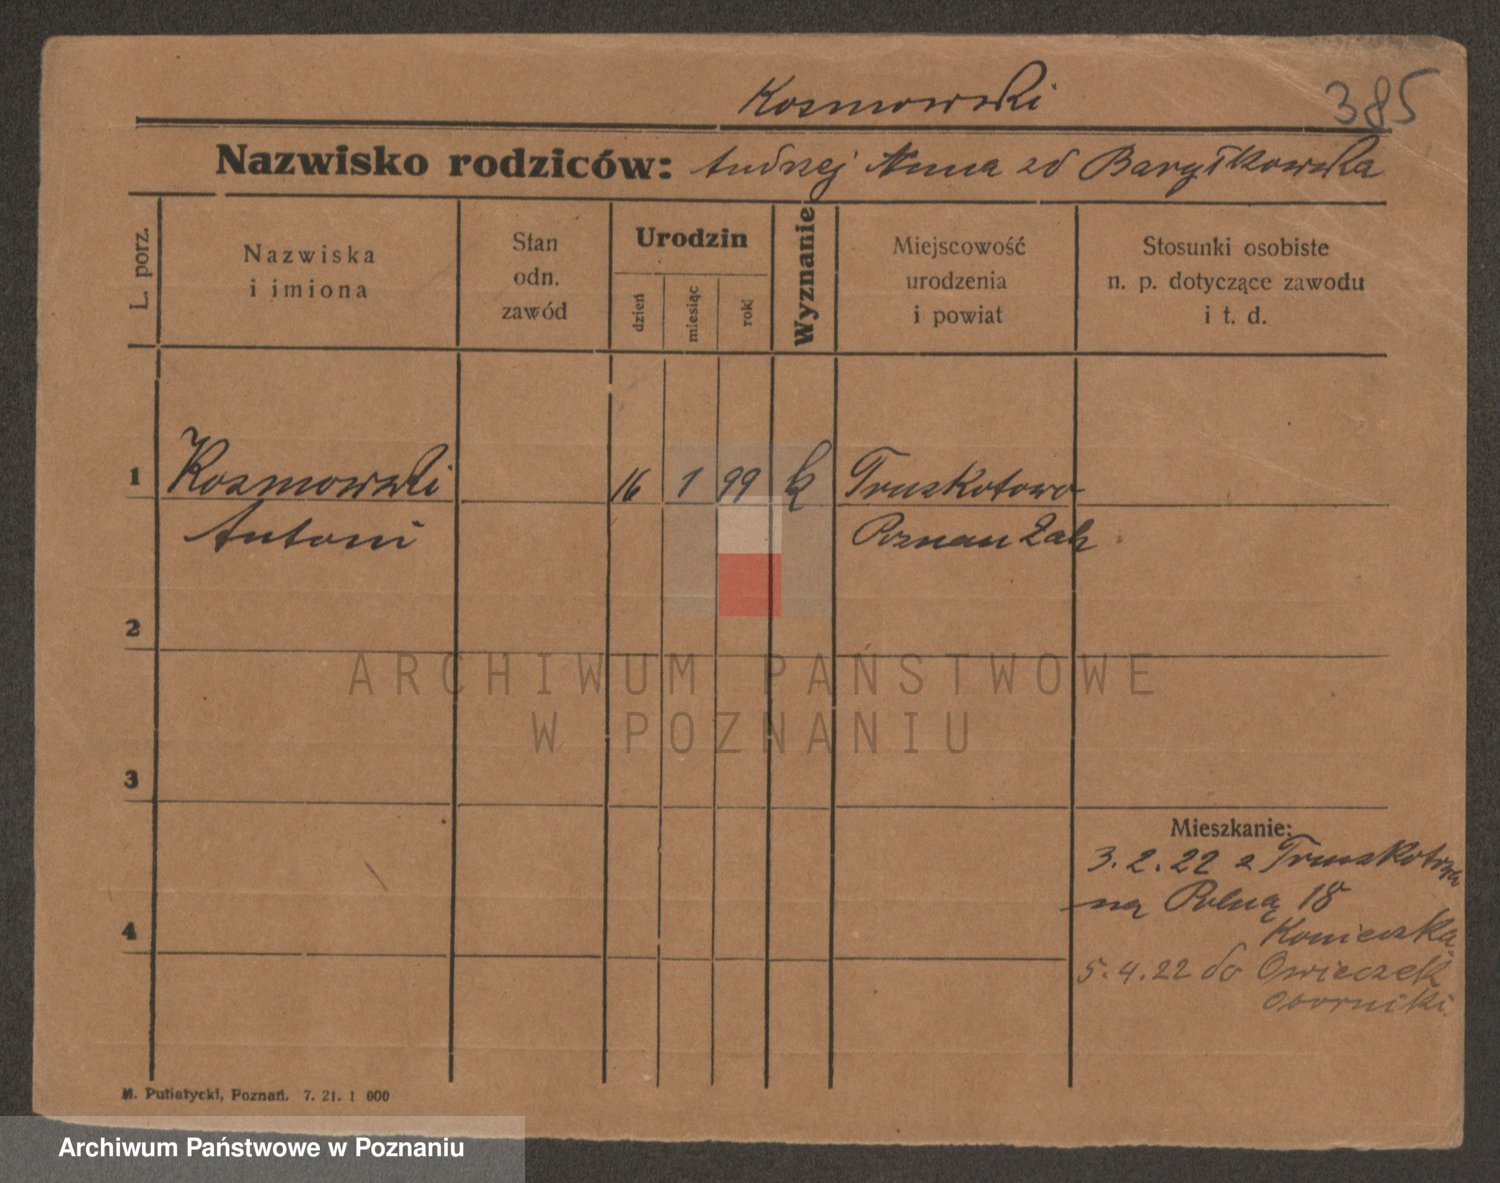 Kosmowski
385
Nazwisko rodziców: Andrzej Anna zd Baryłkowska
L. porz.
Nazwiska
i imiona
Stan
odn.
zawód
Urodzin
dzień
miesiąc
rok
Wyznanie
Miejscowość
urodzenia
i powiat
Stosunki osobiste
n. p. dotyczące zawodu
i t. d.
1 Kosmowski 16 1 99 k Truskotowo
Antoni Poznań Zah
2
ARCHIWUM PAŃSTWOWE
W POZNANIU
3
Mieszkanie:
3.2.22 z
na Polną 18
4
5.4.22 do Owieczek
Oborniki
M. Putiatycki, Poznań. 7. 21. 1 000
Archiwum Państwowe w Poznaniu